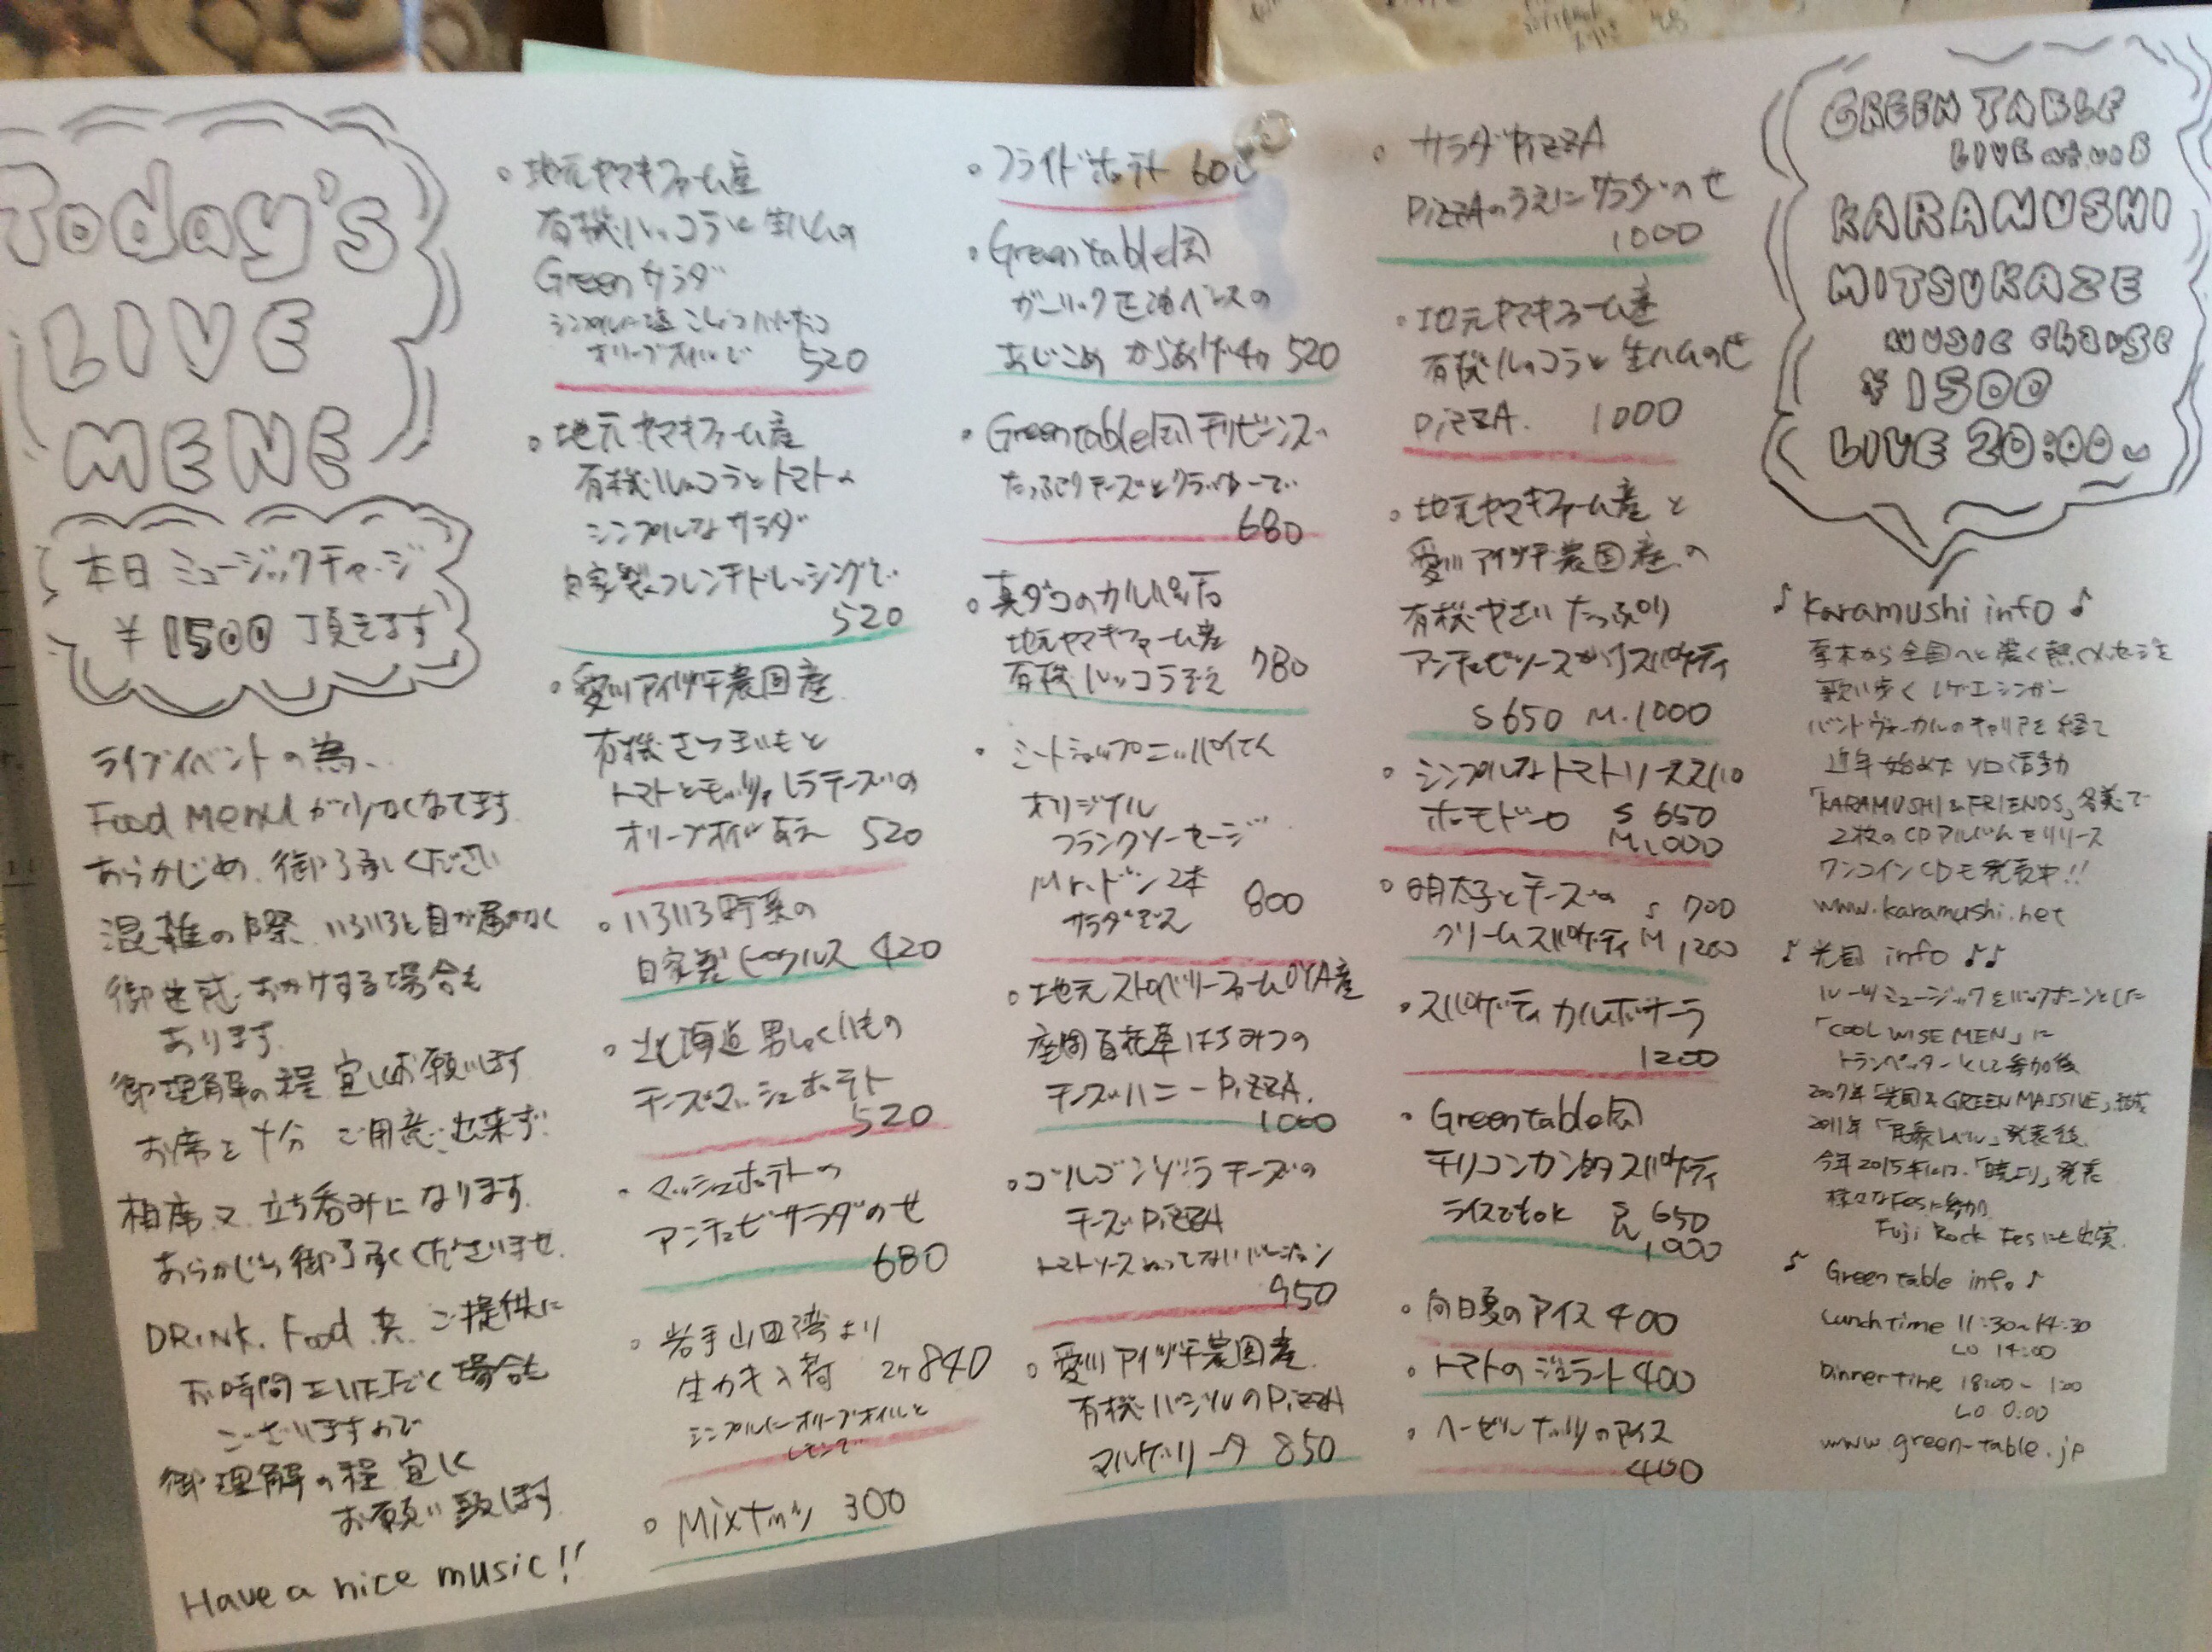 Today's
LIVE
MENE
本日 ミュージックチャージ
¥1500 頂きます
ライブイベントの為、
Food Menuが少なくなってます
あらかじめ、御了承ください
混雑の際、いろいろと目が届かなく
御迷惑おかけする場合も
あります。
御理解の程 宜しくお願いします
お席を十分 ご用意出来ず
相席又、立ち呑みになります。
あらかじめ御了承くださいませ。
DRiNK. Food 共 ご提供に
お時間をいただく場合も
ございますので
御理解の程 宜しく
お願い致します
Have a nice music!!
地元ヤマキファーム産
有機ルッコラと生ハムの
Greenサラダ
オリーブオイルで 520
地元ヤマキファーム産
有機ルッコラとトマトの
シンプルなサラダ
自家製フレンチドレッシングで
520
愛川アイヅチ農園産
有機さつまいもと
トマトとモッツァレラチーズの
オリーブオイルあえ 520
いろいろ野菜の
自家製ピクルス 420
北海道 男しゃくいもの
チーズマッシュポテト
520
マッシュポテトの
アンチョビサラダのせ
680
岩手山田湾より
生カキ入荷 2ケ840
シンプルにオリーブオイルと
レモンで
Mixナッツ 300
フライドポテト 600
Greentable風
ガーリック正油ベースの
あじこめ からあげ4ヵ 520
Greentable風チリビーンズ
たっぷりチーズとクラッカーで
680
真ダコのカルパッチョ
地元ヤマキファーム産
有機ルッコラ添え 780
ミートショップニッパイてん
オリジナル
フランクソーセージ
Mr.ドン 2本
サラダ添え 800
地元ストロベリーファームOYA産
座間百花草はちみつの
チーズハニーPiZZA.
1000
ゴルゴンゾラチーズの
チーズPiZZA
トマトソースぬってないバージョン
950
愛川アイヅチ農園産
有機バジルのPiZZA
マルゲリータ 850
サラダPiZZA
PiZZAのうえにサラダのせ
1000
地元ヤマキファーム産
有機ルッコラと生ハムのせ
PiZZA. 1000
地元ヤマキファーム産と
愛川アイヅチ農園産の
有機やさいたっぷり
アンチョビソースがけスパゲティ
S 650 M.1000
シンプルなトマトソーススパゲ
ポモドーロ S 650
M1000
明太子とチーズの S 700
クリームスパゲティ M 1200
スパゲティカルボナーラ
1200
Greentable風
チリコンカン的スパゲティ
ライスでもok S 650
1000
向日夏のアイス 400
トマトのジェラート 400
ヘーゼルナッツのアイス
400
GREEN TABLE
KARAMUSHI
MITSUKAZE
MUSIC CHARGE
¥1500
LIVE 20:00〜
♪ Karamushi info ♪
厚木から全国へと 濃く熱くメッセージを
歌い歩く レゲエシンガー
バンドヴォーカルのキャリアを経て
近年始めたソロ活動
「KARAMUSHI & FRIENDS」名義で
2枚のCDアルバムをリリース
ワンコインCDも発売中!!
www.karamushi.net
♪ 光風 info ♪♪
ルーツミュージックをバックボーンとした
「COOL WISE MEN」に
トランペッターとして参加後
2007年「光風 & GREEN MASSIVE」結成
2011年 発表後
今年2015年には、「暁より」発表
様々なFesに参加
Fuji Rock Fesにも出演
♪ Green table info ♪
Lunch time 11:30〜14:30
LO 14:00
Dinner time 18:00〜1:00
LO 0:00
www.green-table.jp